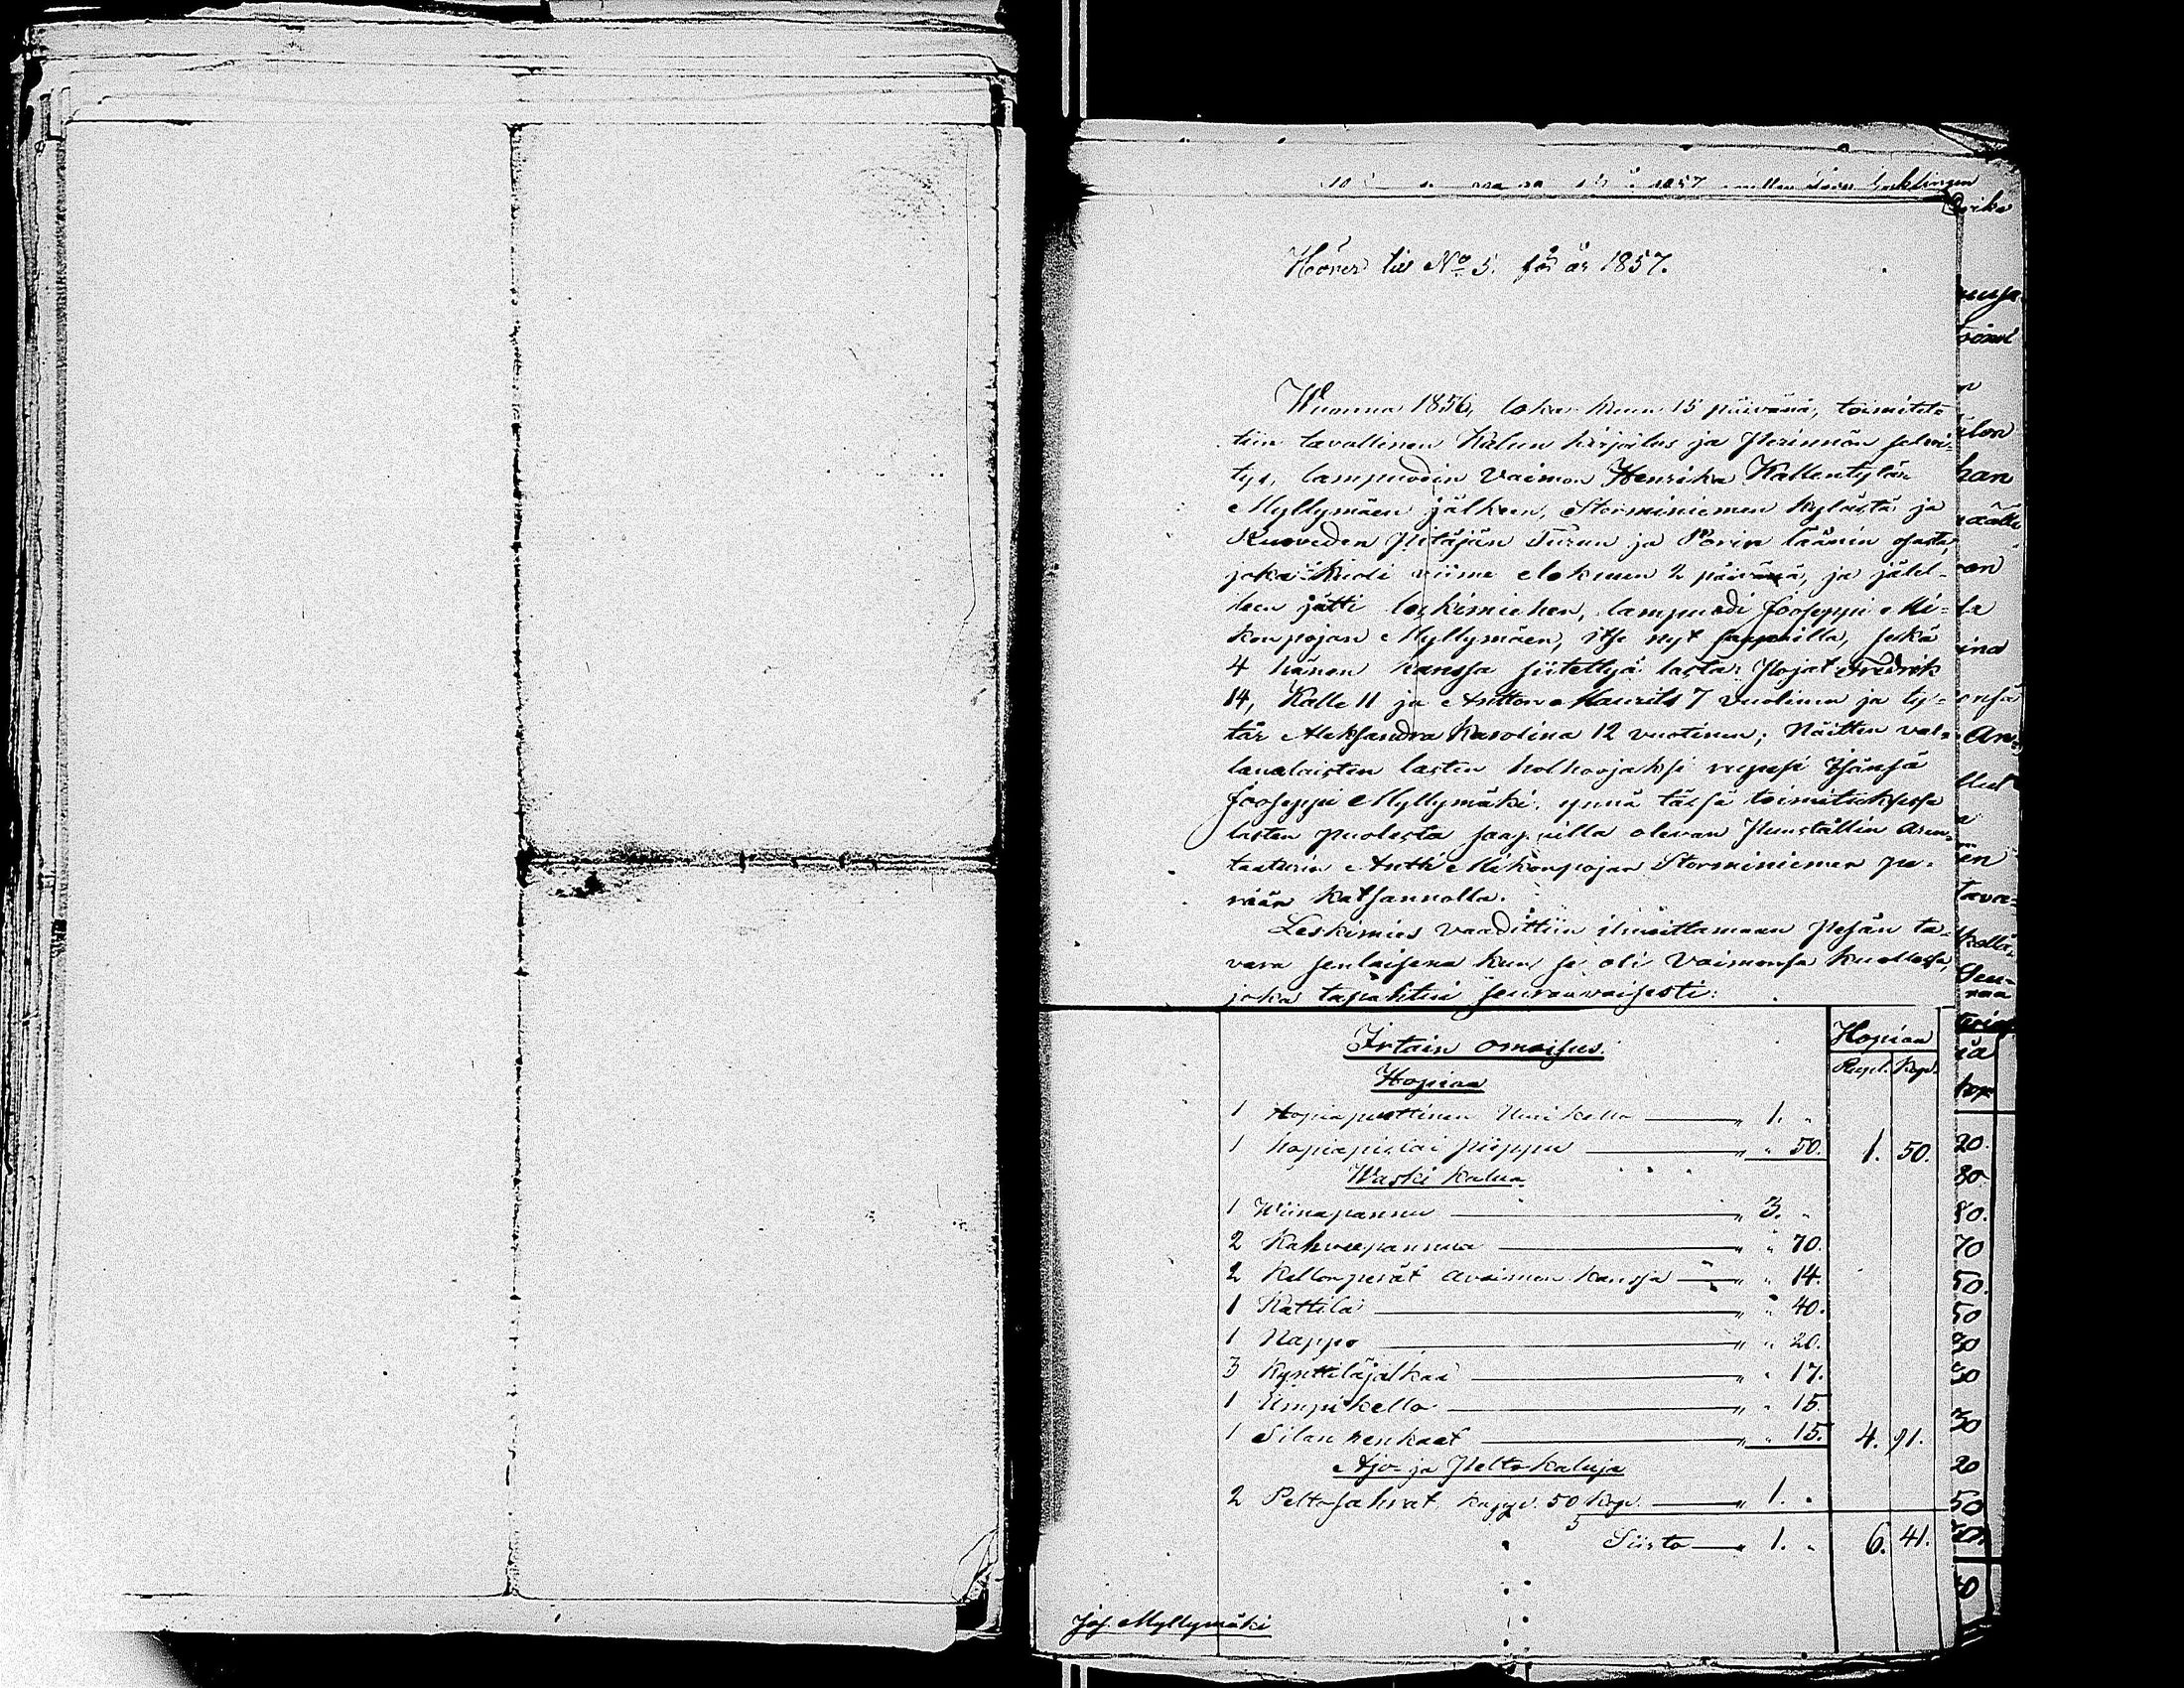 Hörer till No 5. för år 1857.
Wuonna 1856, loka-kuun 15 päivänä, toimitet=
tiin tavallinen Kalun kirjoitus ja Perinnön selvi=
tys, lampuodin Vaimon Henrika Kallentytär
Myllymäen jälkeen, Storminiemen kylästä ja
Ruoveden Pitäjän Turun ja Porin läänin osasta,
joka kuoli viime elokuun 2 päivänä, ja jälel=
leen jätti leskimiehen, lampuodi Jooseppi Mi=
konpojan Myllymäen, itse nyt saapuilla, sekä
4 hänen kanssa siitettyä lasta: Pojat Fredrik
14, Kalle 11 ja Antton Maurits 7 vuotinen ja ty=
tär Aleksandra Karolina 12 vuotinen; Näitten val=
lanalaisten lasten holhoojaksi rupesi Isänsä
Jooseppi Myllymäki, ynnä tässä toimituksessa
lasten puolesta saapuilla olevan Punstallin Aren=
taaturin Antti Mikonpojan Storminiemen pe=
rään katsannolla.
Leskimies vaadittiin ilmoittamaan Pesän ta=
vara senlaisena kun se oli Vaimonsa kuollessa,
joka tapahtui seuraavaisesti:
Irtain omaisus. Hopian
Hopiaa Rupl. Kop.
1 Hopiaputtinen Uuri kello — „ 1. „
1 hopiapislai piippu — „ „ 50. 1. 50.
Waski kalua
1 Wiinapannu — „ 3. „
2 Kahveepannua — „ „ 70.
2 Kellonperät avaimen kanssa — „ „ 14.
1 Kattila — „ „ 40.
1 Nappo — „ „ 20.
3 Kynttiläjalkaa — „ „ 17.
1 Umpikello — „ „ 15.
1 Silan renkaat — „ „ 15. 4. 91.
Ajo- ja Pelto-kaluja
2 Pelto-sahrat, kappl. 50 kop. — „ 1. „
Siirto — „ 1. „ 6. 41.
Jos. Myllymäki